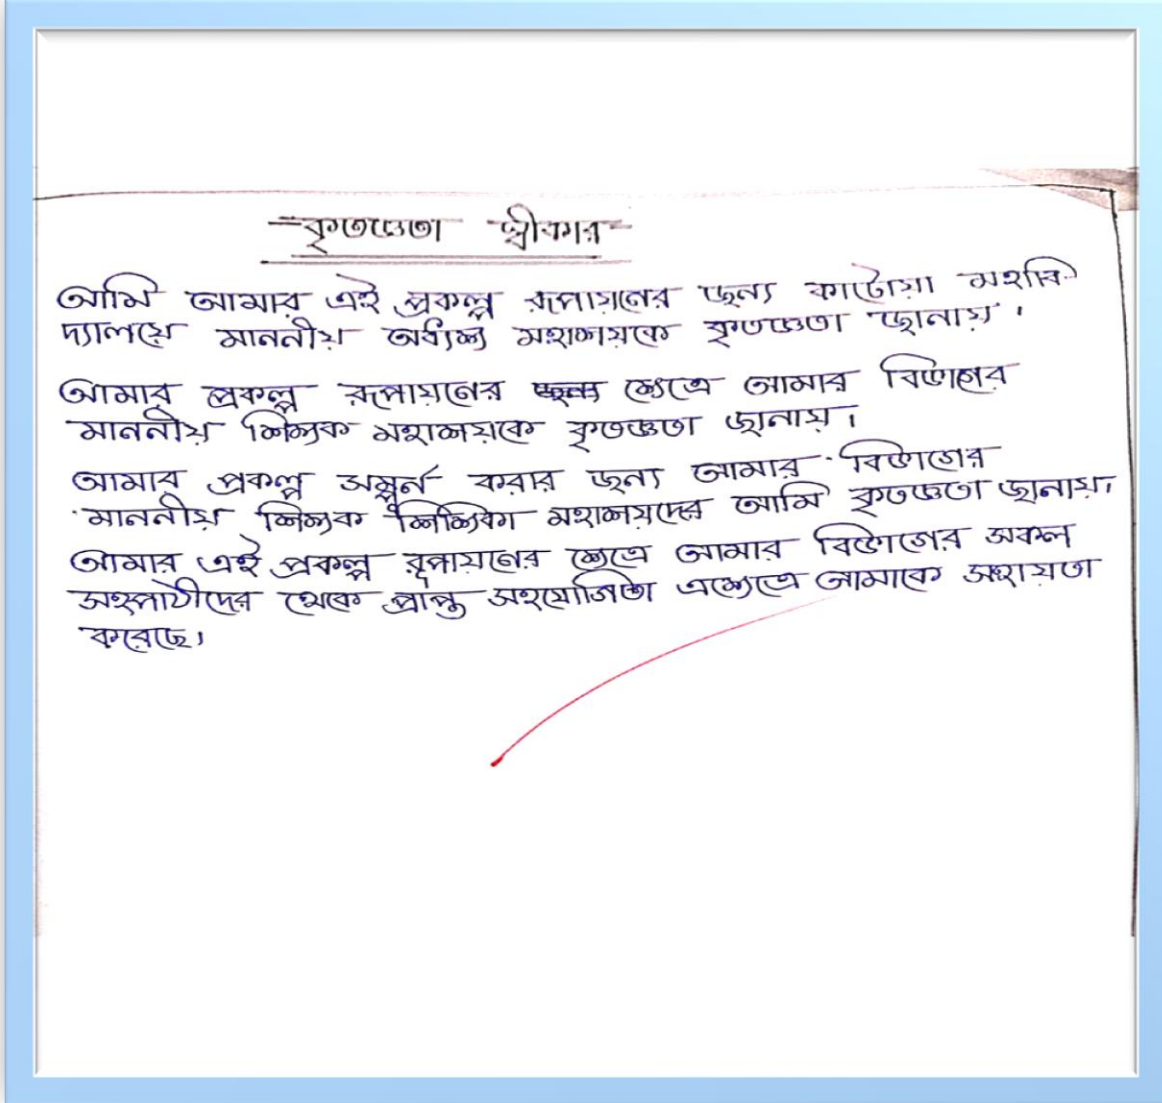 কৃতজ্ঞতা স্বীকার
আমি আমার এই প্রকল্প রূপায়নের জন্য কাটোয়া মহাবি-
দ্যালয়ে মাননীয় অধ্যক্ষ মহাশয়কে কৃতজ্ঞতা জানায়।
আমার প্রকল্প রূপায়নের ক্ষেত্রে আমার বিভাগের
মাননীয় শিক্ষক মহাশয়কে কৃতজ্ঞতা জানায়।
আমার প্রকল্প সম্পুর্ন করার জন্য আমার বিভাগের
মাননীয় শিক্ষক শিক্ষিকা মহাশয়দের আমি কৃতজ্ঞতা জানায়।
আমার এই প্রকল্প রূপায়নের ক্ষেত্রে আমার বিভাগের সকল
সহপাঠীদের থেকে প্রাপ্ত সহযোগিতা এক্ষেত্রে আমাকে সহায়তা
করেছে।